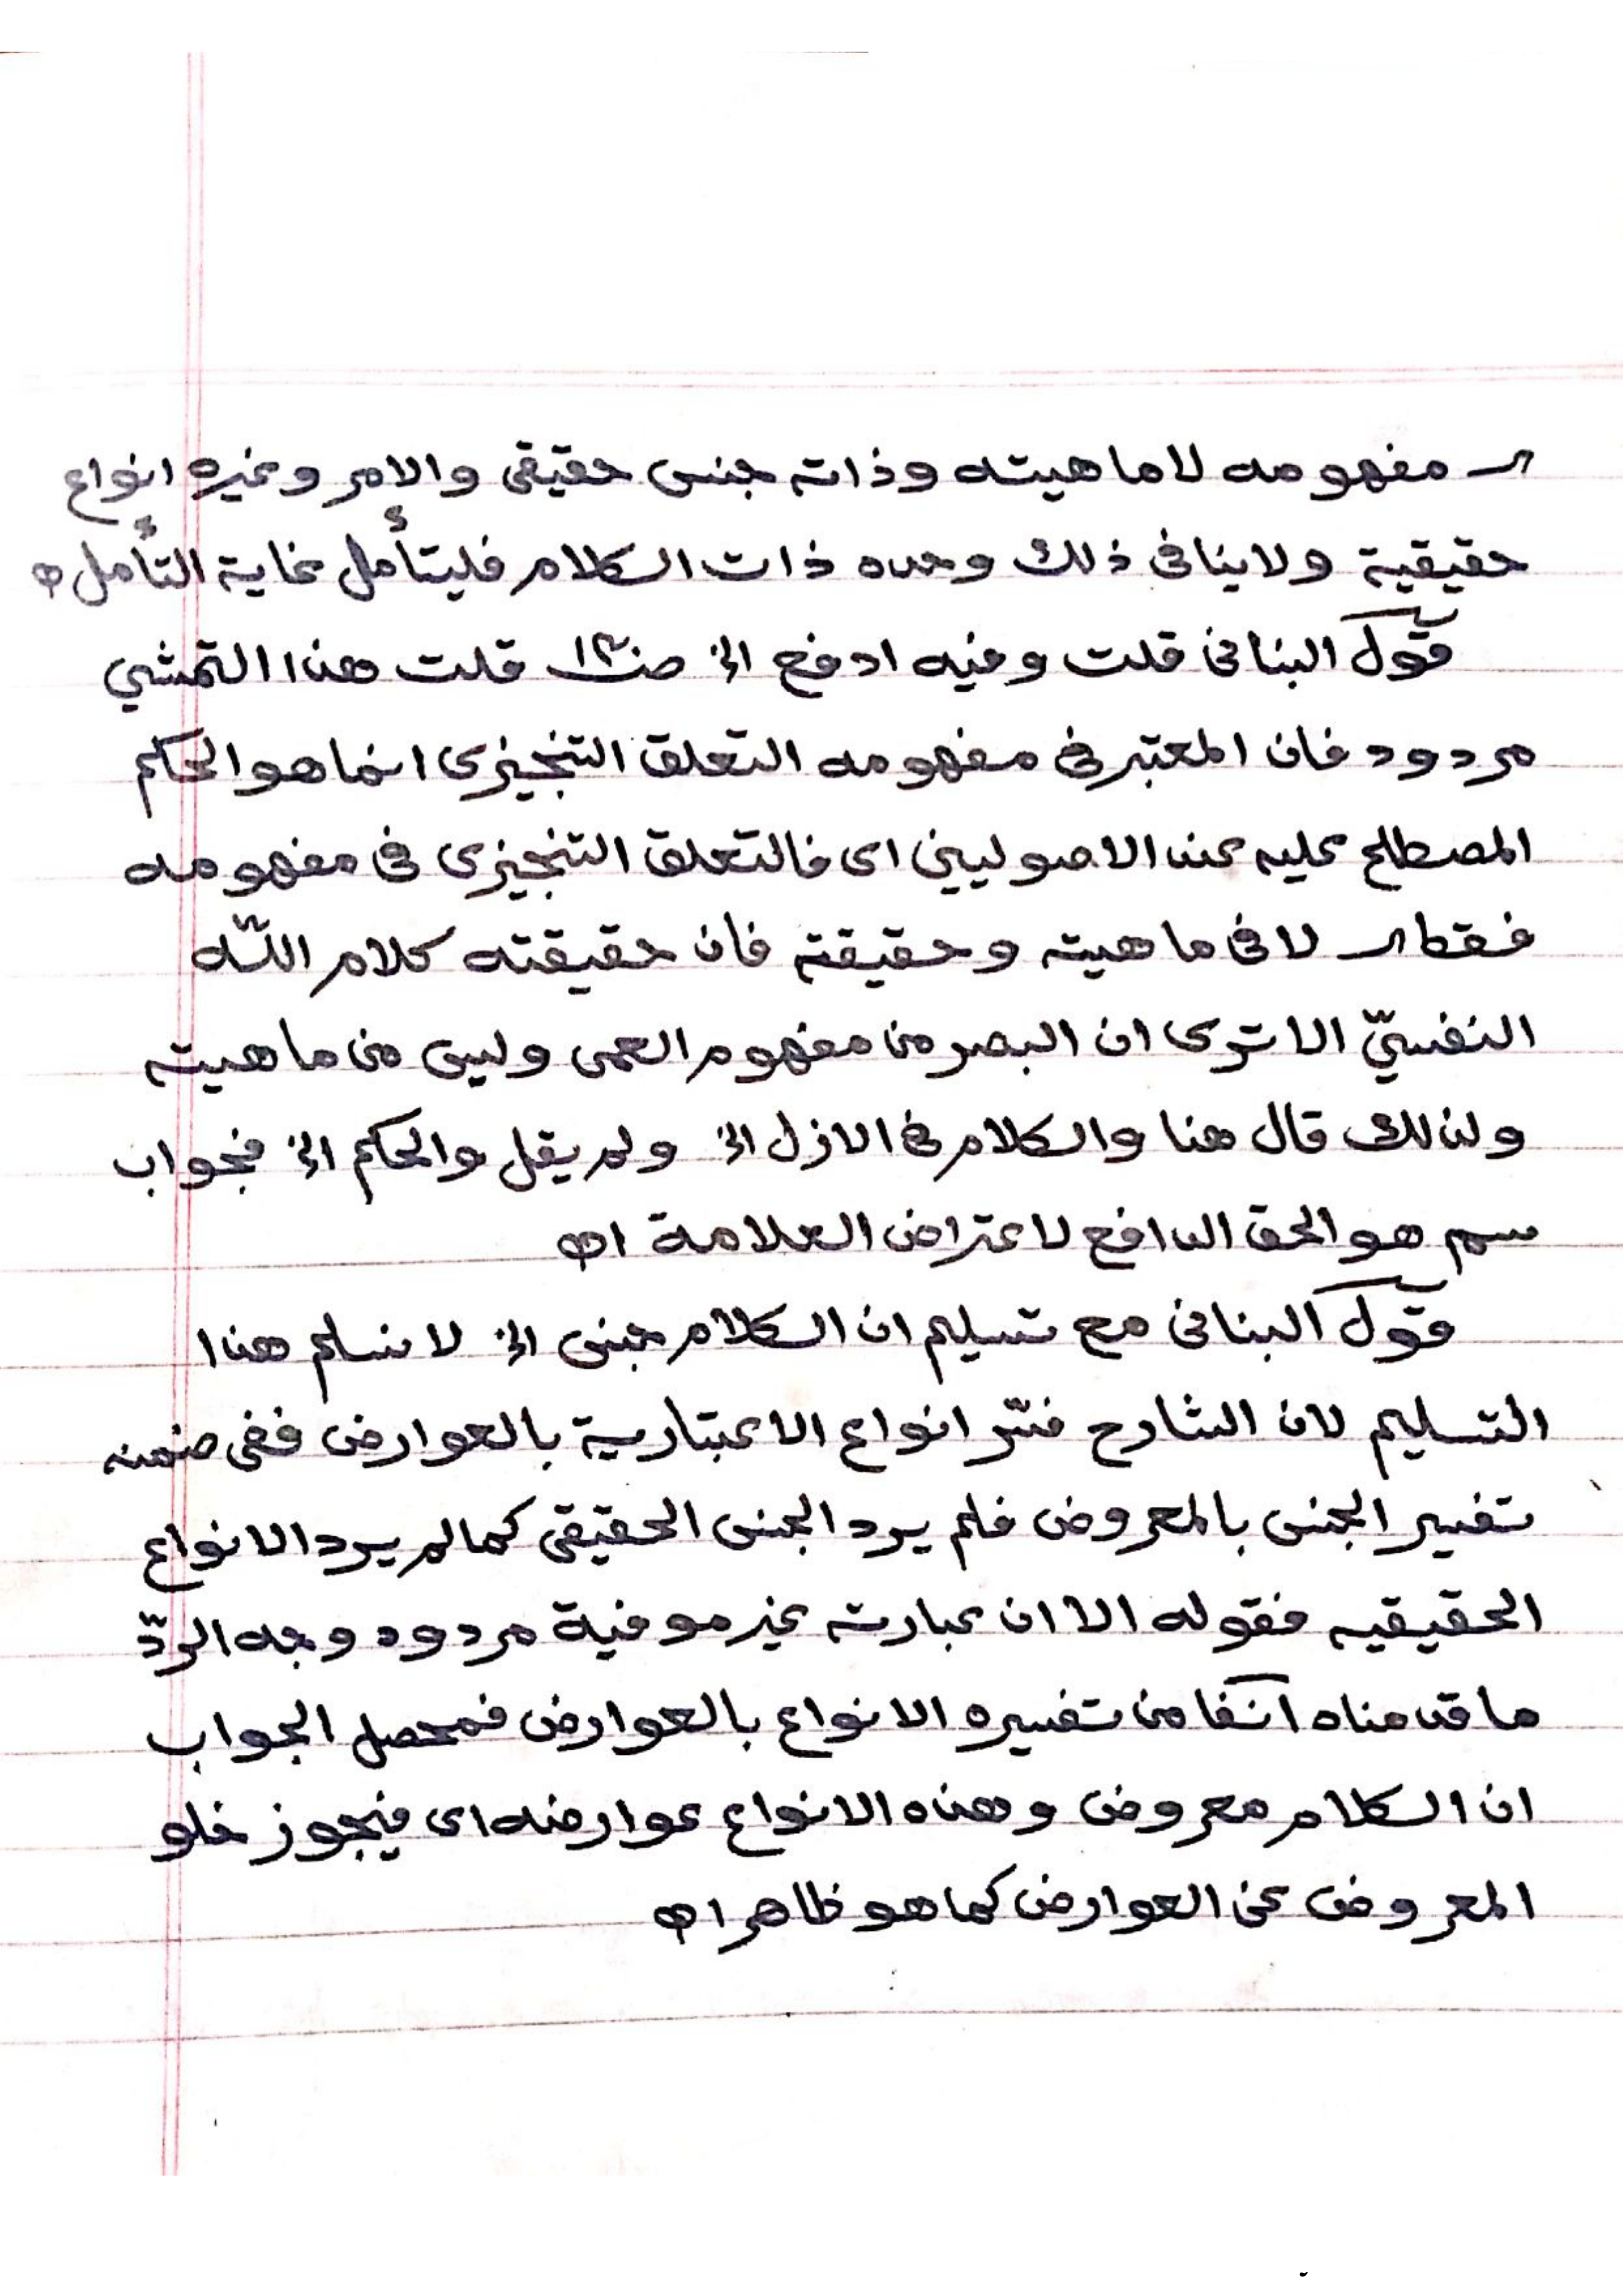 مفهومه لا ماهيته وذاته جنس حقيقى والامر وغيره انواع
حقيقية ولا ينافى ذلك وحده ذات الكلام فليتأمل غاية التأمل اه
قول البنانى قلت وفيه ادفع الخ قلت هذا التمشي
مردود فان المعتبر فى مفهومه التعلق التنجيزى انما هو الحكم
المصطلح عليه عند الاصوليين اى فالتعلق التنجيزى فى مفهومه
فقط لا فى ماهيته وحقيقته فان حقيقته كلام اللّه
النفسيّ الا ترى ان البصر من مفهوم العمى وليس من ماهيته
ولذلك قال هنا والكلام فى الازل الخ ولم يقل والحكم الخ فجواب
سم هو الحق الدافع لاعتراض العلامة اه
قول البنانى مع تسليم ان الكلام جنس الخ لا نسلم هذا
التسليم لان الشارح فسّر انواع الاعتبارية بالعوارض ففى ضمنه
تفسير الجنس بالمعروض فلم يرد الجنس الحقيقى كما لم يرد الانواع
الحقيقيه فقوله الا ان عبارته غير موفية مردود وجه الردّ
ما قدمناه آنفا من تفسيره الانواع بالعوارض فمحصل الجواب
ان الكلام معروض وهذه الانواع عوارضه اى فيجوز خلو
المعروض عن العوارض كما هو ظاهر اه